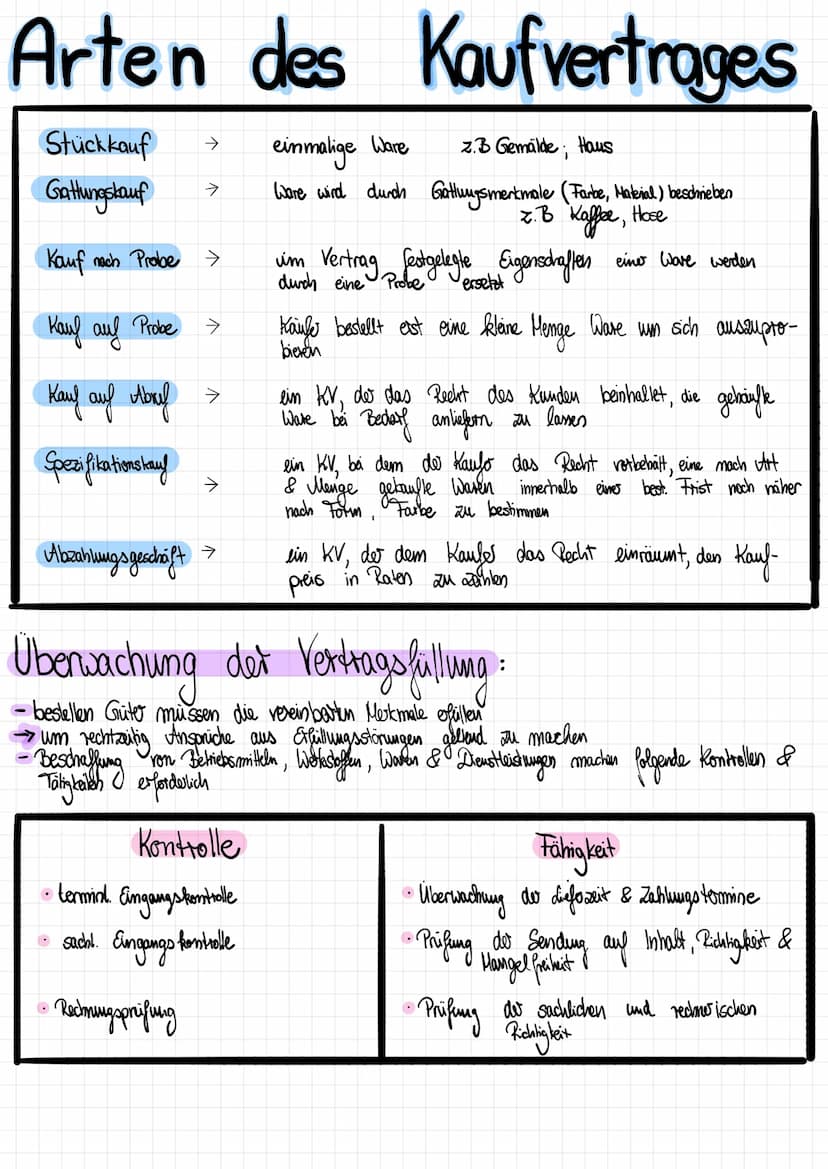 Arten des Kaufvertrages
Stückkauf → einmalige Ware z.B Gemälde, Haus
Gattungskauf → Ware wird durch Gattungsmerkmale (Farbe, Material) beschrieben
z.B Kaffee, Hose
Kauf nach Probe → im Vertrag festgelegte Eigenschaften einer Ware werden
durch eine Probe ersetzt
Kauf auf Probe → Käufer bestellt erst eine kleine Menge Ware um sich auszupro-
bieren
Kauf auf Abruf → ein KV, der das Recht des Kunden beinhaltet, die gekaufte
Ware bei Bedarf anliefern zu lassen
Spezifikationskauf → ein KV, bei dem der Käufer das Recht vorbehält, eine nach Art
& Menge gekaufte Waren innerhalb einer best. Frist noch näher
nach Form, Farbe zu bestimmen
Abzahlungsgeschäft → ein KV, der dem Käufer das Recht einräumt, den Kauf-
preis in Raten zu zahlen
Überwachung der Vertragsfüllung:
- bestellen Güter müssen die vereinbarten Merkmale erfüllen
→ um rechtzeitig Ansprüche aus Erfüllungsstörungen geltend zu machen
- Beschaffung von Betriebsmitteln, Werkstoffen, Waren & Dienstleistungen machen folgende Kontrollen &
Tätigkeiten erforderlich
Kontrolle
Fähigkeit
• terminl. Eingangskontrolle
• Überwachung der Lieferzeit & Zahlungstermine
• sachl. Eingangskontrolle
• Prüfung der Sendung auf Inhalt, Richtigkeit &
Mangelfreiheit
• Rechnungsprüfung
• Prüfung der sachlichen und rechnerischen
Richtigkeit